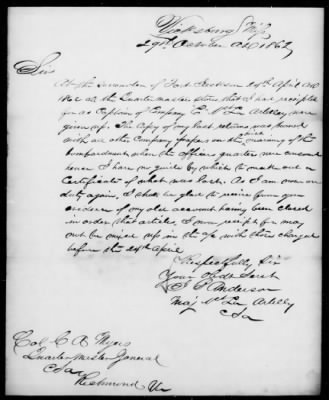 Vicksburg Mip
29th October AD 1862
Sir
At the surrender of Fort Jackson 28th April AD
1862 all the Quartermasters stores that I had receipted
for as Captain of Company E 1st La Artillery were
given up. The Copy of my last returns, was burned
with all other Company papers on the morning of the
bombardment when the officers quarters were consumed
hence I have no guide by which to make out a
Certificate of what was lost. As I am now on
duty again, I shall be glad to receive from you
evidence of my old account having been closed
in order that articles, I now receipt for may
not be mixed up in the a/c with those charged
before the 28th April
Respectfully Sir
Your Obdt Servt
J B Anderson
Maj 1st La Artilly
CSA
Col C A Myers
Quarter Master General
CSA
Richmond Va